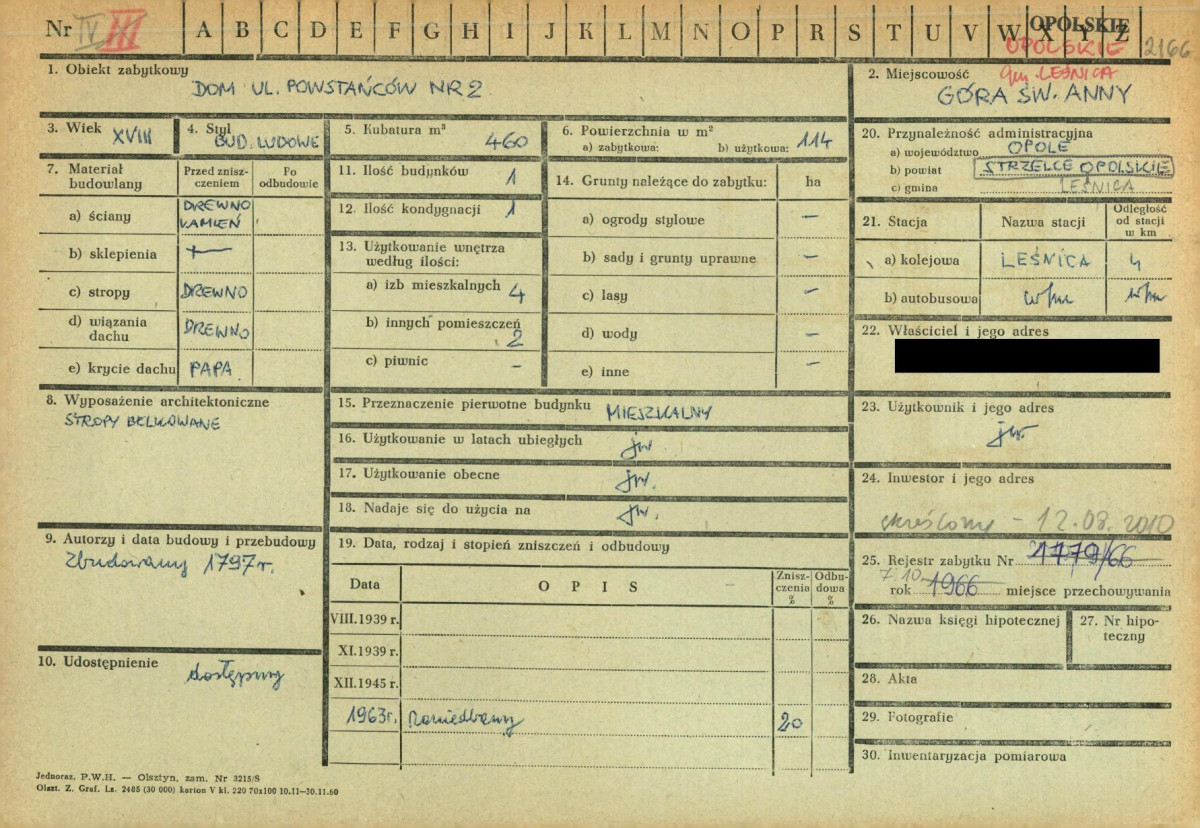 Nr IV III A B C D E F G H I J K L M N O P R S T U V W X Y Z OPOLSKIE
OPOLSKIE 2166
1. Obiekt zabytkowy
DOM UL. POWSTAŃCÓW NR 2
2. Miejscowość gm. LEŚNICA
GÓRA ŚW. ANNY
3. Wiek XVIII
4. Styl BUD. LUDOWE
5. Kubatura m³ 460
6. Powierzchnia w m²
a) zabytkowa: b) użytkowa: 114
20. Przynależność administracyjna
a) województwo OPOLE
b) powiat STRZELCE OPOLSKIE
c) gmina LEŚNICA
7. Materiał budowlany
Przed zniszczeniem
Po odbudowie
a) ściany DREWNO KAMIEŃ
b) sklepienia —
c) stropy DREWNO
d) wiązania dachu DREWNO
e) krycie dachu PAPA
11. Ilość budynków 1
12. Ilość kondygnacji 1
13. Użytkowanie wnętrza
według ilości:
a) izb mieszkalnych 4
b) innych pomieszczeń 2
c) piwnic -
14. Grunty należące do zabytku: ha
a) ogrody stylowe —
b) sady i grunty uprawne —
c) lasy —
d) wody —
e) inne —
21. Stacja Nazwa stacji Odległość od stacji w km
a) kolejowa LEŚNICA 4
b) autobusowa w/m w/m
22. Właściciel i jego adres
8. Wyposażenie architektoniczne
STROPY BELKOWANE
15. Przeznaczenie pierwotne budynku MIESZKALNY
16. Użytkowanie w latach ubiegłych jw
17. Użytkowanie obecne jw.
18. Nadaje się do użycia na jw.
23. Użytkownik i jego adres
jw.
24. Inwestor i jego adres
skreślony - 12.08.2010
9. Autorzy i data budowy i przebudowy
Zbudowany 1797 r.
19. Data, rodzaj i stopień zniszczeń i odbudowy
Data OPIS Zniszczenia % Odbudowa %
VIII.1939 r.
XI.1939 r.
XII.1945 r.
1963r. Zaniedbany 20
25. Rejestr zabytku Nr 1779/66
7.10 rok 1966 miejsce przechowywania
26. Nazwa księgi hipotecznej
27. Nr hipoteczny
10. Udostępnienie dostępny
28. Akta
29. Fotografie
30. Inwentaryzacja pomiarowa
Jednoraz. P.W.H. — Olsztyn, zam. Nr 3215/S
Olszt. Z. Graf. Lz. 2485 (30 000) karton V kl. 220 70x100 10.11—30.11.60